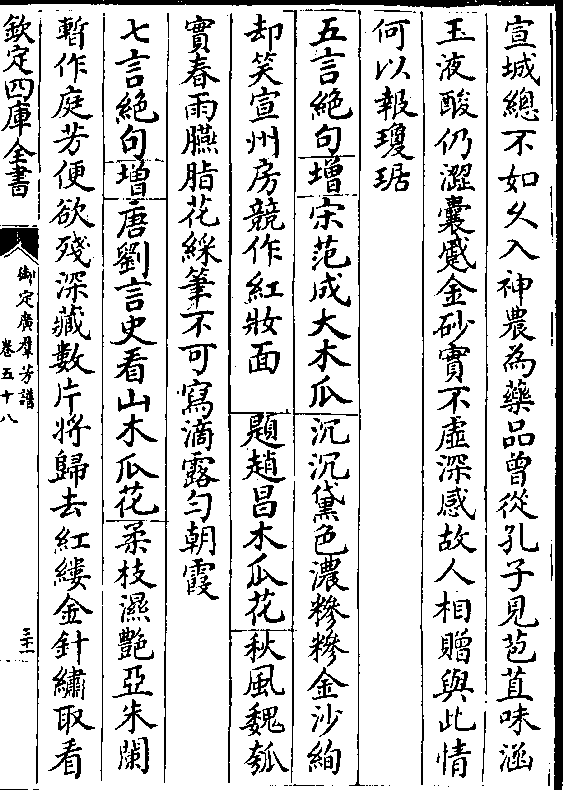 宣城總不如乆入神農為藥品曾從孔子見苞苴味涵
玉液酸仍澀囊蹙金砂實不虛深感故人相贈與此情
何以報瓊琚
五言絕句增宋范成大木瓜沉沉黛色濃糝糝金沙絢
却笑宣州房競作紅妝面　題趙昌木瓜花秋風魏瓠
實春雨臙脂花綵筆不可寫滴露匀朝霞
七言絕句增唐劉言史看山木瓜花柔枝濕艷亞朱闌
暫作庭芳便欲殘深藏數片將歸去紅縷金針繡取看
欽定四庫全書
御定廣羣芳譜
卷五十八
三十一